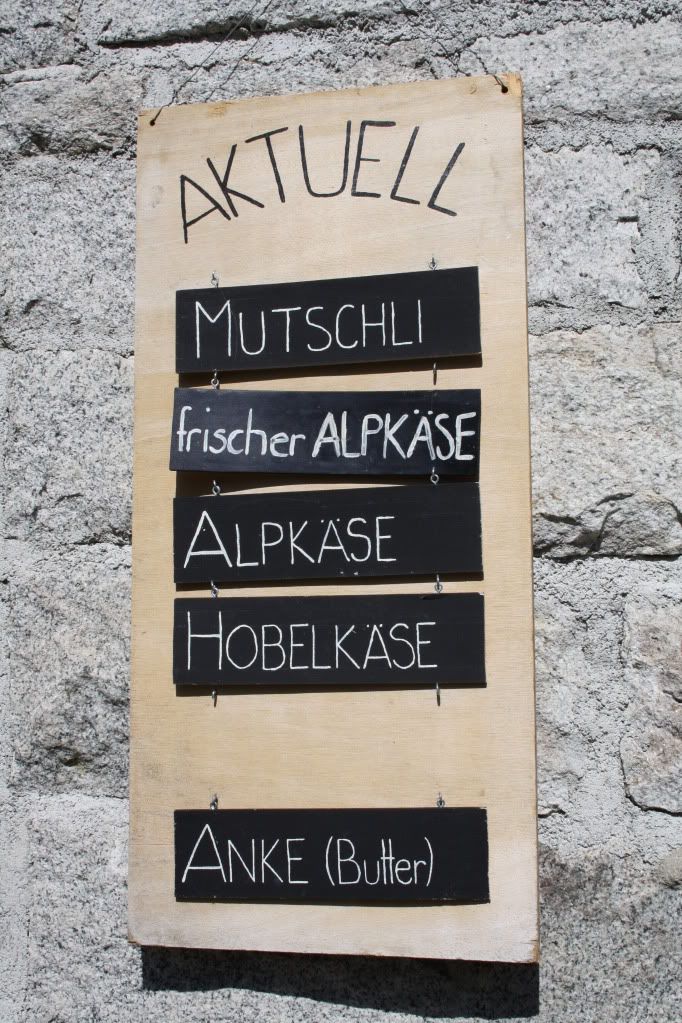 AKTUELL
MUTSCHLI
frischer ALPKÄSE
ALPKÄSE
HOBELKÄSE
ANKE (Butter)